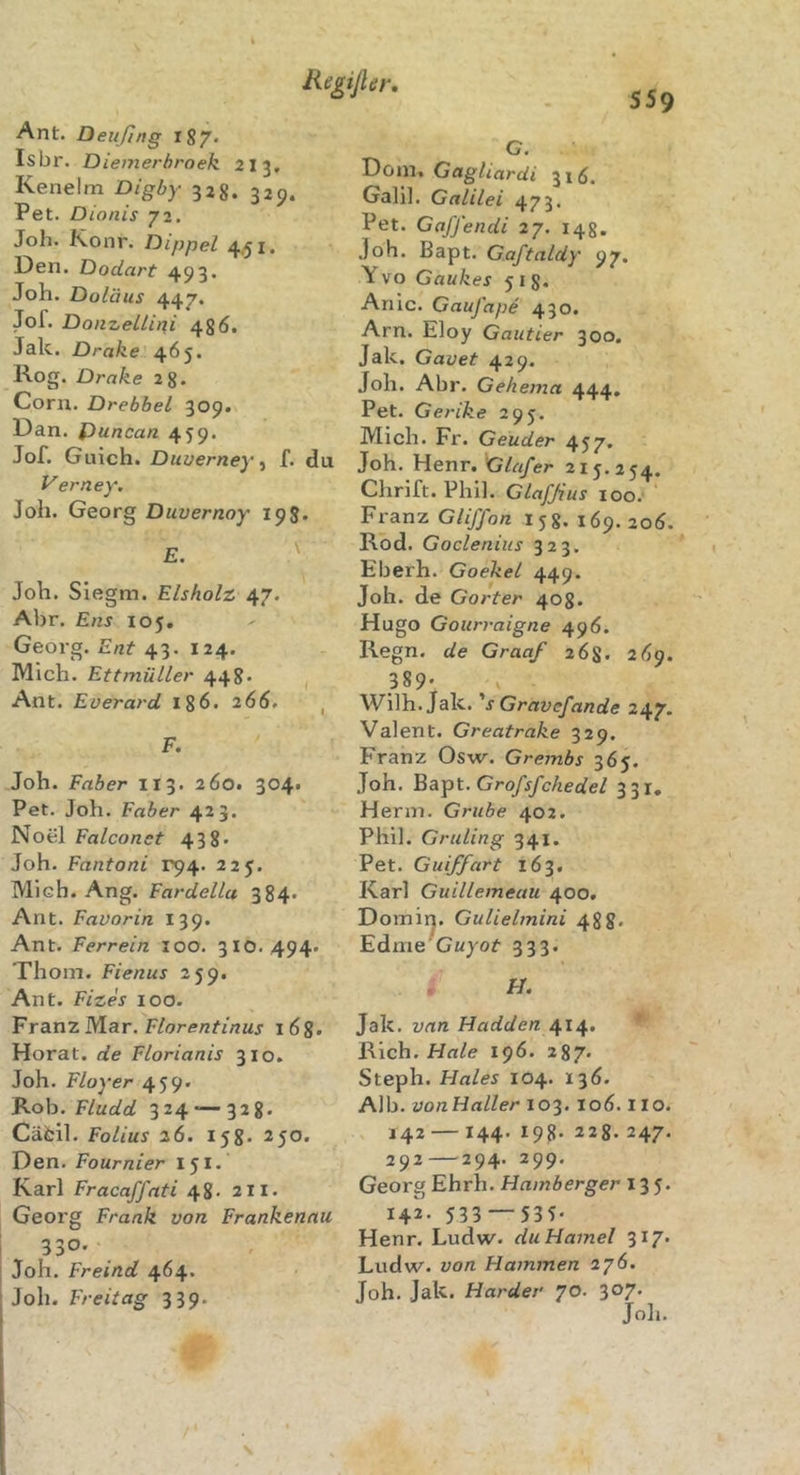 Regiſter.
559
Ant. Deuſing 187.
Isbr. Diemerbroek 213.
Kenelm Digby 328. 329.
Pet. Dionis 72.
Joh. Konr. Dippel 451.
Den. Dodart 493.
Joh. Doläus 447.
Joſ. Donzellini 486.
Jak. Drake 465.
Rog. Drake 28.
Corn. Drebbel 309.
Dan. Duncan 459.
Joſ. Guich. Duverney, ſ. du
Verney.
Joh. Georg Duvernoy 198.
E.
Joh. Siegm. Elsholz 47.
Abr. Ens 105.
Georg. Ent 43. 124.
Mich. Ettmüller 448.
Ant. Everard 186. 266.
F.
Joh. Faber 113. 260. 304.
Pet. Joh. Faber 423.
Noël Falconet 438.
Joh. Fantoni 194. 225.
Mich. Ang. Fardella 384.
Ant. Favorin 139.
Ant. Ferrein 100. 310. 494.
Thom. Fienus 259.
Ant. Fizés 100.
Franz Mar. Florentinus 168.
Horat. de Florianis 310.
Joh. Floyer 459.
Rob. Fludd 324 — 328.
Cäcil. Folius 26. 158. 250.
Den. Fournier 151.
Karl Fracaſſati 48. 211.
Georg Frank von Frankenau
330.
Joh. Freind 464.
Joh. Freitag 339.
G.
Dom. Gagliardi 316.
Galil. Galilei 473.
Pet. Gaſſendi 27. 148.
Joh. Bapt. Gaſtaldy 97.
Yvo Gaukes 518.
Anic. Gauſapé 430.
Arn. Eloy Gautier 300.
Jak. Gavet 429.
Joh. Abr. Gehema 444.
Pet. Gerike 295.
Mich. Fr. Geuder 457.
Joh. Henr. Glaſer 215. 254.
Chriſt. Phil. Glaſſius 100.
Franz Gliſſon 158. 169. 206.
Rod. Goclenius 323.
Eberh. Goekel 449.
Joh. de Gorter 408.
Hugo Gourraigne 496.
Regn. de Graaf 268. 269.
389.
Wilh. Jak. 's Graveſande 247.
Valent. Greatrake 329.
Franz Osw. Grembs 365.
Joh. Bapt. Groſsſchedel 331.
Herm. Grube 402.
Phil. Gruling 341.
Pet. Guiffart 163.
Karl Guillemeau 400.
Domin. Gulielmini 488.
Edme Guyot 333.
H.
Jak. van Hadden 414.
Rich. Hale 196. 287.
Steph. Hales 104. 136.
Alb. von Haller 103. 106. 110.
142 — 144. 198. 228. 247.
292 — 294. 299.
Georg Ehrh. Hamberger 135.
142. 533 — 535.
Henr. Ludw. du Hamel 317.
Ludw. von Hammen 276.
Joh. Jak. Harder 70. 307.
Joh.